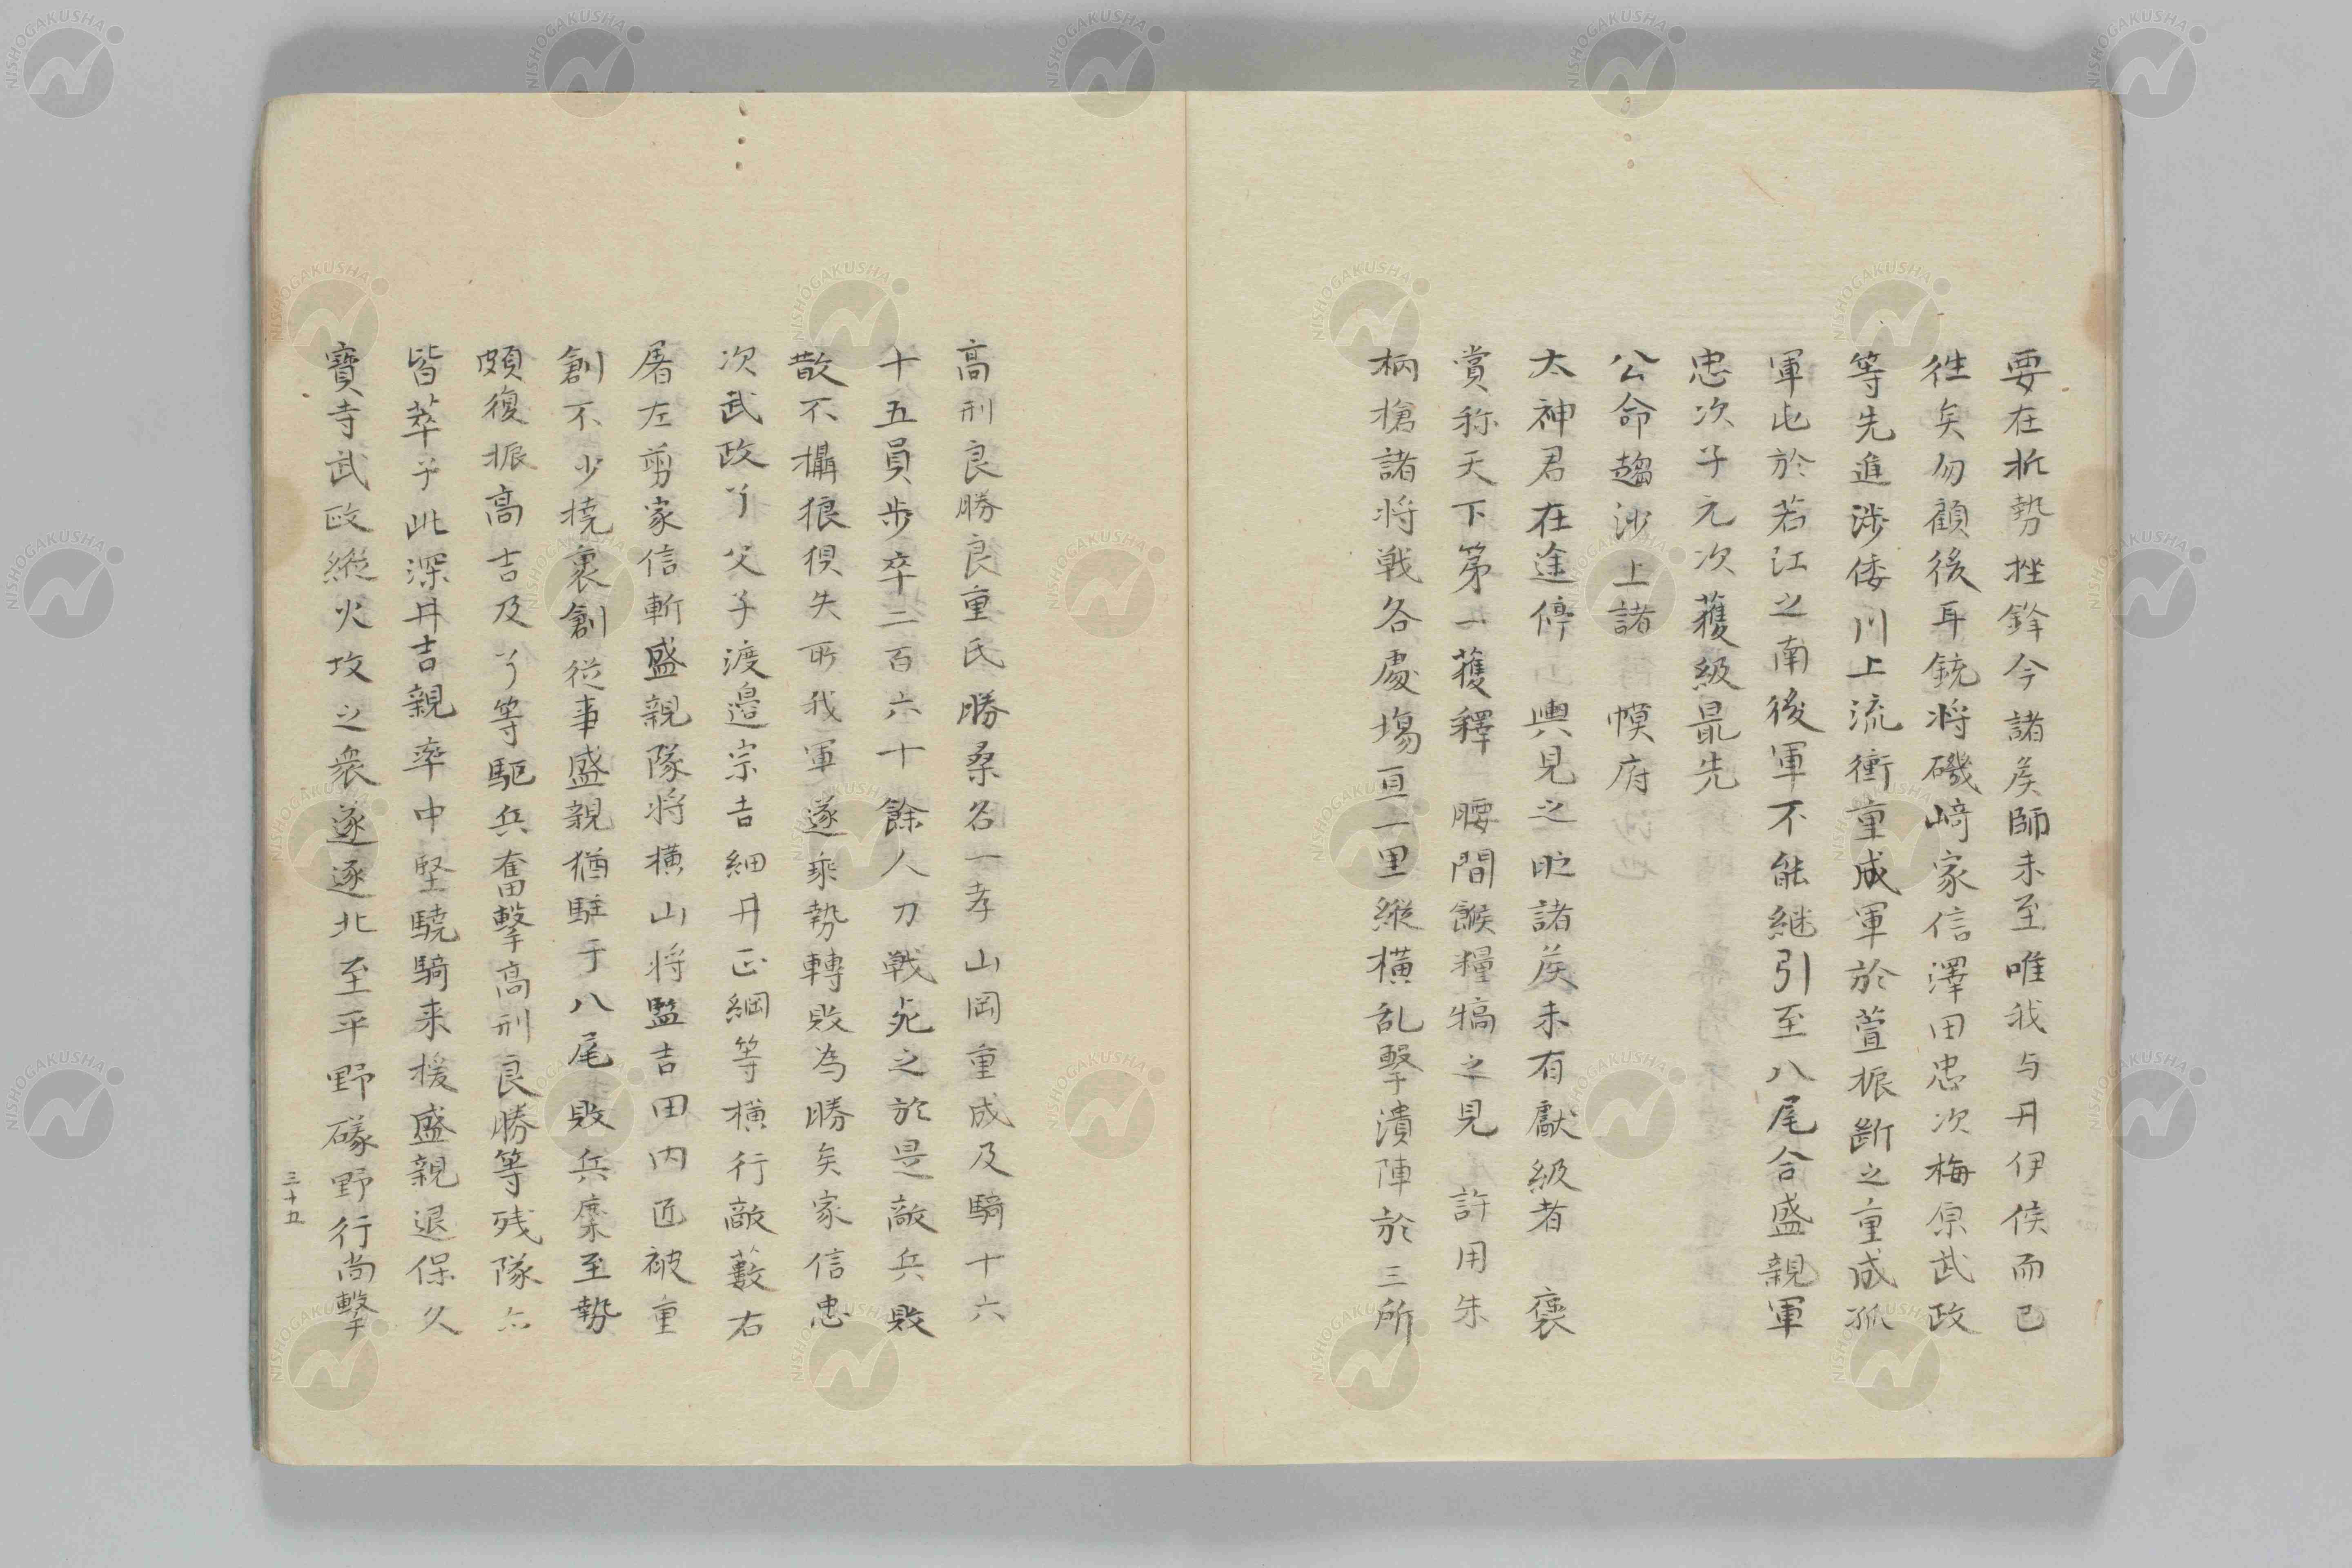 要在折勢挫鋒今諸矦師未至唯我与丹伊侯而已
徃矣勿顧後耳銃将磯﨑家信澤田忠次梅原武政
等先進渉倭川上流衝重成軍於萱振斷之重成孤
軍屯於若江之南後軍不能継引至八尾合盛親軍
忠次子元次獲級最先
公命趨沙上諸 幙府
太神君在途停 輿見之昨諸矦未有獻級者 褒
賞称天下第一獲釋 腰間餱糧犒之見 許用朱
柄槍諸将戦各處塲亘一里縱横乱撃潰陣於三所
高刑良勝良重氏勝桑名一孝山岡重成及騎十六
十五員步卒二百六十餘人力戦死之於是敵兵敗
散不攝狼狽失所我軍遂乘勢轉敗為勝矣家信忠
次武政了父子渡邉宗吉細井正綱等横行敵藪右
屠左剪家信斬盛親隊将横山将監吉田内匠被重
創不少撓裹創從事盛親猶駐于八尾敗兵麋至勢
頗復振高吉及了等駈兵奮撃高刑良勝等残隊亦
皆萃于此深井吉親率中堅驍騎来援盛親退保久
寳寺武政縱火攻之衆遂逐北至平野礒野行尚撃
三十五
NISHOGAKUSHA